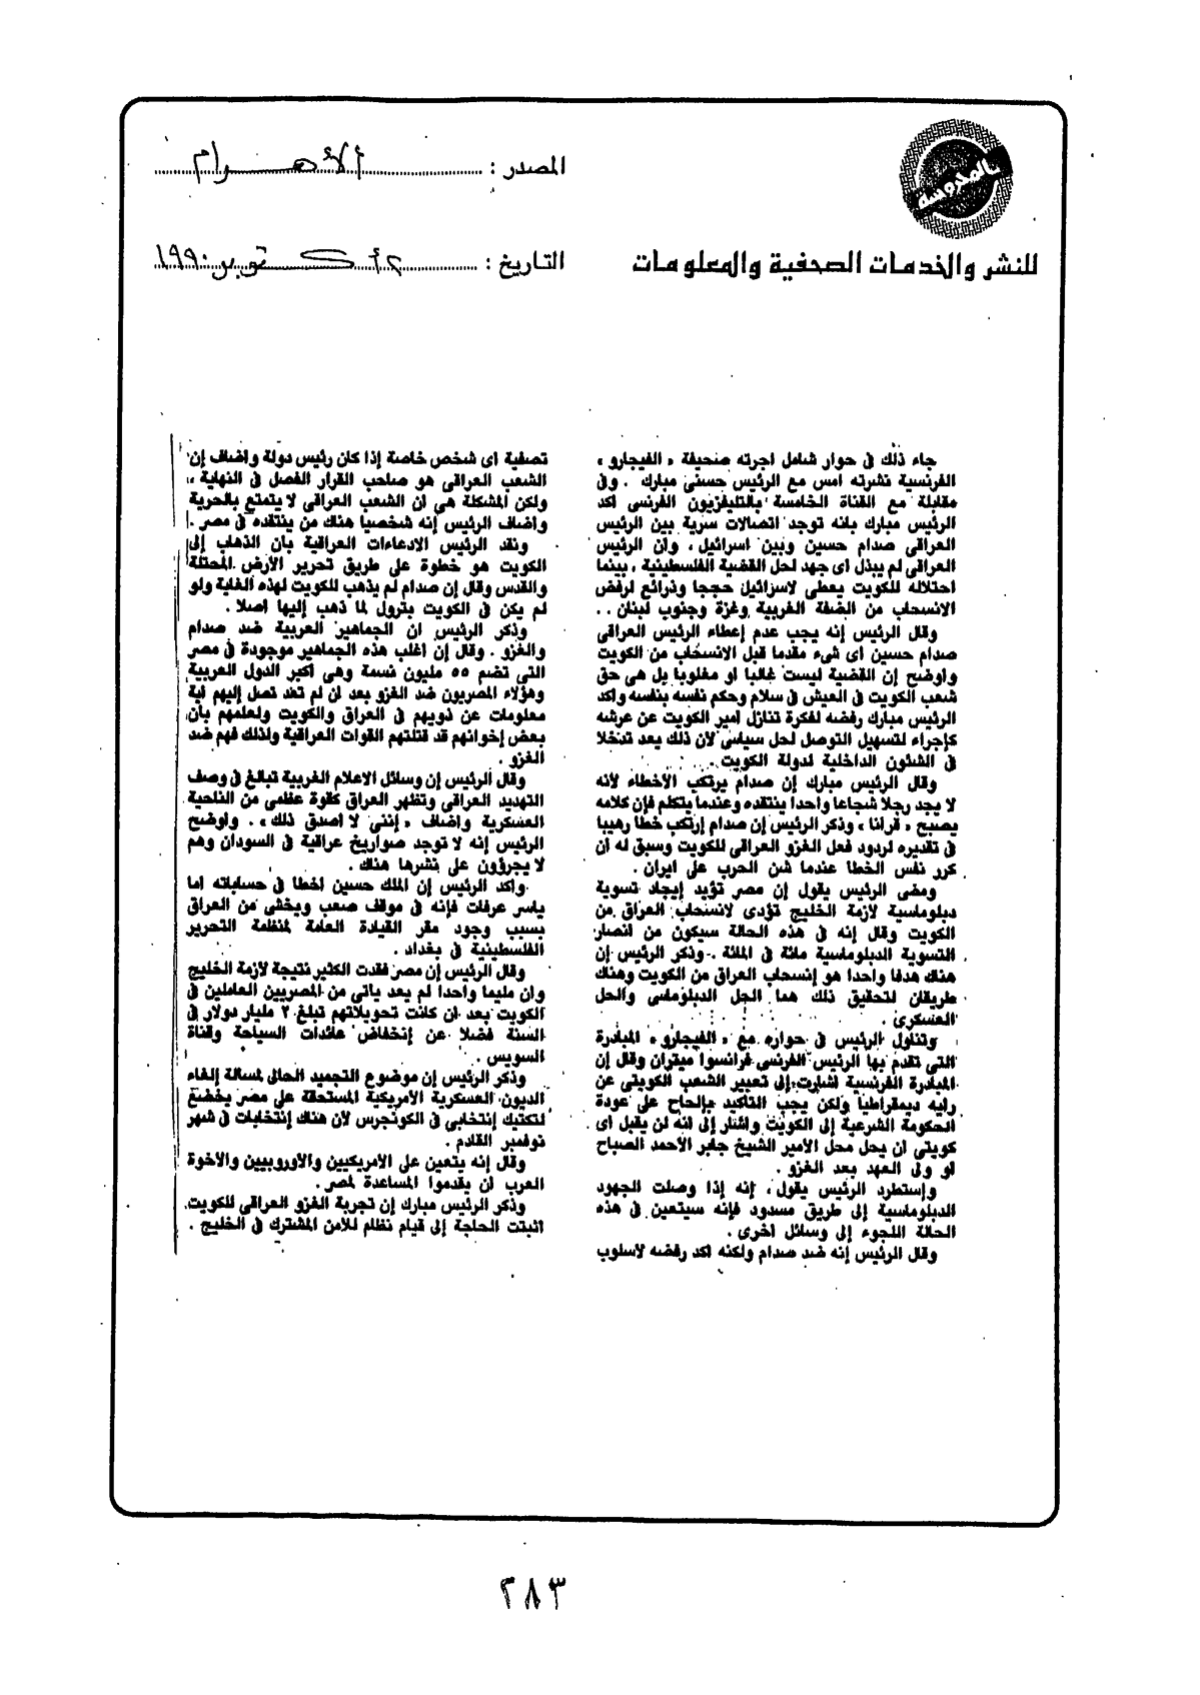 المحروسة
للنشر والخدمات الصحفية والمعلومات
المصدر : الأهرام
التاريخ : ٢ أكتوبر ١٩٩٠
جاء ذلك فى حوار شامل اجرته صحيفة « الفيجارو »
الفرنسية نشرته امس مع الرئيس حسنى مبارك . وفى
مقابلة مع القناة الخامسة بالتليفزيون الفرنسى اكد
الرئيس مبارك بانه توجد اتصالات سرية بين الرئيس
العراقى صدام حسين وبين اسرائيل ، وان الرئيس
العراقى لم يبذل اى جهد لحل القضية الفلسطينية ، بينما
احتلاله للكويت يعطى لاسرائيل حججا وذرائع لرفض
الانسحاب من الضفة الغربية وغزة وجنوب لبنان . .
وقال الرئيس إنه يجب عدم إعطاء الرئيس العراقى
صدام حسين اى شىء مقدما قبل الانسحاب من الكويت
واوضح إن القضية ليست غالبا او مغلوبا بل هى حق
شعب الكويت فى العيش فى سلام وحكم نفسه بنفسه واكد
الرئيس مبارك رفضه لفكرة تنازل امير الكويت عن عرشه
كإجراء لتسهيل التوصل لحل سياسى لان ذلك يعد تدخلا
فى الشئون الداخلية لدولة الكويت .
وقال الرئيس مبارك إن صدام يرتكب الأخطاء لأنه
لا يجد رجلا شجاعا واحدا ينتقده وعندما يتكلم فإن كلامه
يصبح « قرانا » وذكر الرئيس إن صدام إرتكب خطا رهيبا
فى تقديره لردود فعل الغزو العراقى للكويت وسبق له ان
كرر نفس الخطا عندما شن الحرب على ايران .
ومضى الرئيس يقول إن مصر تؤيد إيجاد تسوية
دبلوماسية لازمة الخليج تؤدى لانسحاب العراق من
الكويت وقال إنه فى هذه الحالة سيكون من انصار
التسوية الدبلوماسية مائة فى المائة . وذكر الرئيس إن
هناك هدفا واحدا هو إنسحاب العراق من الكويت وهناك
طريقان لتحقيق ذلك هما الحل الدبلوماسى والحل
العسكرى
وتناول الرئيس فى حواره مع « الفيجارو » المبادرة
التى تقدم بها الرئيس الفرنسى فرانسوا ميتران وقال إن
المبادرة الفرنسية اشارت إلى تعبير الشعب الكويتى عن
رايه ديمقراطيا ولكن يجب التاكيد بإلحاح على عودة
الحكومة الشرعية إلى الكويت واشار إلى انه لن يقبل اى
كويتى ان يحل محل الامير الشيخ جابر الأحمد الصباح
او ولى العهد بعد الغزو .
وإستطرد الرئيس يقول ، إنه إذا وصلت الجهود
الدبلوماسية إلى طريق مسدود فإنه سيتعين فى هذه
الحالة اللجوء إلى وسائل اخرى .
وقال الرئيس إنه ضد صدام ولكنه اكد رفضه لاسلوب
تصفية اى شخص خاصة إذا كان رئيس دولة واضاف إن
الشعب العراقى هو صاحب القرار الفصل فى النهاية ،
ولكن المشكلة هى ان الشعب العراقى لا يتمتع بالحرية
واضاف الرئيس إنه شخصيا هناك من ينتقده فى مصر .
ونقد الرئيس الادعاءات العراقية بان الذهاب إلى
الكويت هو خطوة على طريق تحرير الأرض المحتلة
والقدس وقال إن صدام لم يذهب للكويت لهذه الغاية ولو
لم يكن فى الكويت بترول لما ذهب إليها اصلا .
وذكر الرئيس ان الجماهير العربية ضد صدام
والغزو . وقال إن اغلب هذه الجماهير موجودة فى مصر
التى تضم ٥٥ مليون نسمة وهى اكبر الدول العربية
وهؤلاء المصريون ضد الغزو بعد ان لم تعد تصل إليهم اية
معلومات عن ذويهم فى العراق والكويت ولعلمهم بأن
بعض إخوانهم قد قتلتهم القوات العراقية ولذلك فهم ضد
الغزو .
وقال الرئيس إن وسائل الاعلام الغربية تبالغ فى وصف
التهديد العراقى وتظهر العراق كقوة عظمى من الناحية
العسكرية واضاف « إننى لا اصدق ذلك » . واوضح
الرئيس إنه لا توجد صواريخ عراقية فى السودان وهم
لا يجرؤون على نشرها هناك .
واكد الرئيس إن الملك حسين اخطا فى حساباته اما
ياسر عرفات فإنه فى موقف صعب ويخشى من العراق
بسبب وجود مقر القيادة العامة لمنظمة التحرير
الفلسطينية فى بغداد .
وقال الرئيس إن مصر فقدت الكثير نتيجة لازمة الخليج
وان مليما واحدا لم يعد ياتى من المصريين العاملين فى
الكويت بعد ان كانت تحويلاتهم تبلغ ٢ مليار دولار فى
السنة فضلا عن إنخفاض عائدات السياحة وقناة
السويس .
وذكر الرئيس إن موضوع التجميد الحالى لمسالة إلغاء
الديون العسكرية الأمريكية المستحقة على مصر يخضع
لتكتيك إنتخابى فى الكونجرس لأن هناك إنتخابات فى شهر
نوفمبر القادم .
وقال إنه يتعين على الامريكيين والاوروبيين والأخوة
العرب ان يقدموا المساعدة لمصر .
وذكر الرئيس مبارك إن تجربة الغزو العراقى للكويت
اثبتت الحاجة إلى قيام نظام للامن المشترك فى الخليج .
٢٨٣